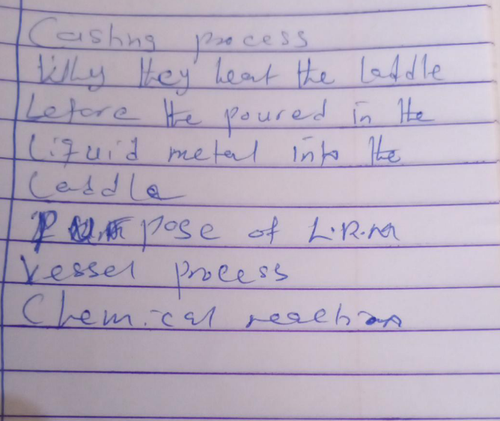 Casting process
Why they heat the laddle
before the poured in the
liquid metal into the
Laddle
Purpose of L.R.M
Vessel process
Chemical reaction